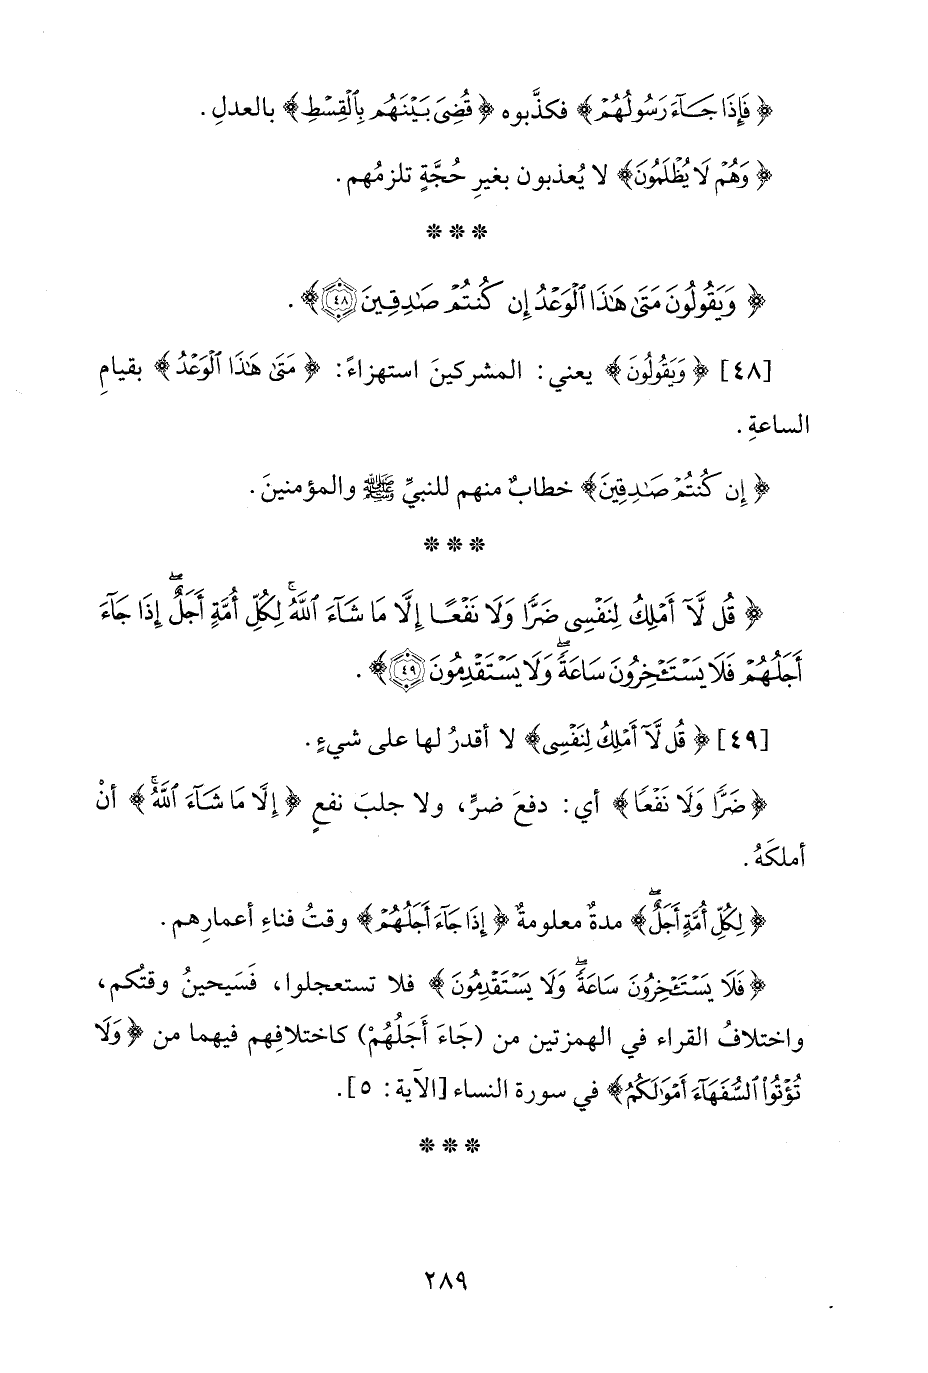 ﴿فَإِذَا جَآءَ رَسُولُهُمۡ﴾ فكذَّبوه ﴿قُضِىَ بَيۡنَهُم بِٱلۡقِسۡطِ﴾ بالعدلِ.
﴿وَهُمۡ لَا يُظۡلَمُونَ﴾ لا يُعذبون بغيرِ حُجَّةٍ تلزمُهم.
* * *
﴿وَيَقُولُونَ مَتَىٰ هَٰذَا ٱلۡوَعۡدُ إِن كُنتُمۡ صَٰدِقِينَ ٤٨﴾.
[٤٨] ﴿وَيَقُولُونَ﴾ يعني: المشركينَ استهزاءً: ﴿مَتَىٰ هَٰذَا ٱلۡوَعۡدُ﴾ بقيامِ
الساعةِ.
﴿إِن كُنتُمۡ صَٰدِقِينَ﴾ خطابٌ منهم للنبيِّ ﷺ والمؤمنينَ.
* * *
﴿قُل لَّآ أَمۡلِكُ لِنَفۡسِى ضَرّٗا وَلَا نَفۡعًا إِلَّا مَا شَآءَ ٱللَّهُۚ لِكُلِّ أُمَّةٍ أَجَلٌۖ إِذَا جَآءَ
أَجَلُهُمۡ فَلَا يَسۡتَـٔۡخِرُونَ سَاعَةٗۖ وَلَا يَسۡتَقۡدِمُونَ ٤٩﴾.
[٤٩] ﴿قُل لَّآ أَمۡلِكُ لِنَفۡسِى﴾ لا أقدرُ لها على شيءٍ.
﴿ضَرّٗا وَلَا نَفۡعًا﴾ أي: دفعَ ضرٍّ، ولا جلبَ نفعٍ ﴿إِلَّا مَا شَآءَ ٱللَّهُۚ﴾ أنْ
أملكَهُ.
﴿لِكُلِّ أُمَّةٍ أَجَلٌۖ﴾ مدةٌ معلومةٌ ﴿إِذَا جَآءَ أَجَلُهُمۡ﴾ وقتُ فناءِ أعمارِهم.
﴿فَلَا يَسۡتَـٔۡخِرُونَ سَاعَةٗۖ وَلَا يَسۡتَقۡدِمُونَ﴾ فلا تستعجلوا، فَسَيحينُ وقتُكم،
واختلافُ القراء في الهمزتين من (جَاءَ أَجَلُهُمْ) كاختلافِهم فيهما من ﴿وَلَا
تُؤۡتُواْ ٱلسُّفَهَآءَ أَمۡوَٰلَكُمُ﴾ في سورة النساء [الآية: ٥].
* * *
٢٨٩